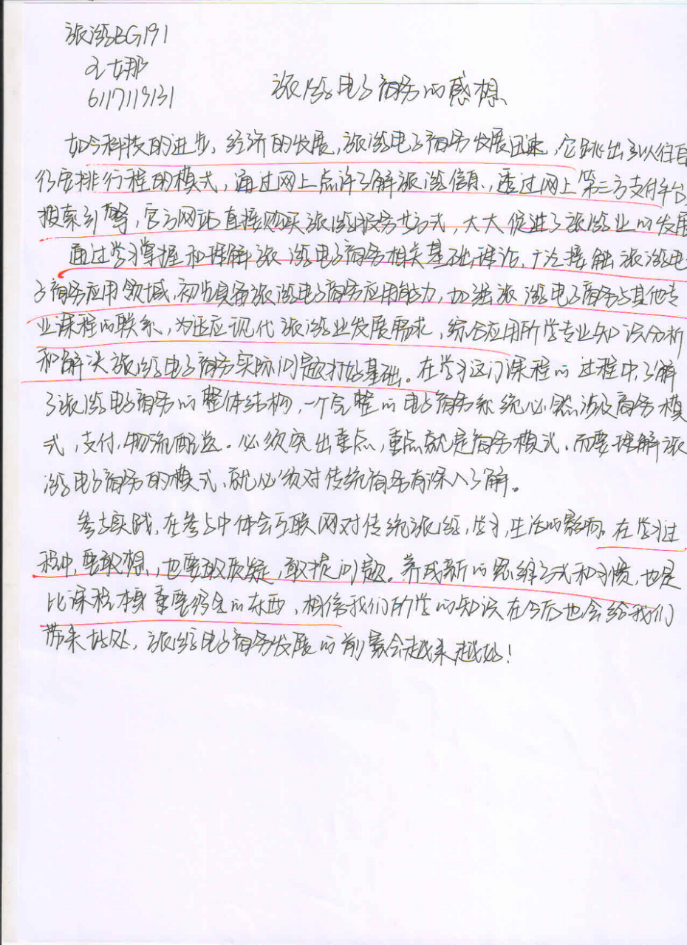 旅游BG191
6117119131
旅游电子商务的感想
如今科技的进步,经济的发展,旅游电子商务发展迅速,它跳出了以往自
行安排行程的模式,通过网上点评了解旅游信息,透过网上第三方支付平台,
搜索引擎,官方网站直接购买旅游服务方式,大大促进了旅游业的发展
通过学习掌握和理解旅游电子商务相关基础理论,广泛接触旅游电
子商务应用领域,初步具备旅游电子商务应用能力,加强旅游电子商务与其他专
业课程的联系,为适应现代旅游业发展需求,综合应用所学专业知识分析
和解决旅游电子商务实际问题打好基础。在学习这门课程的过程中,了解
了旅游电子商务的整体结构,一个完整的电子商务系统必然涉及商务模
式,支付,物流配送。必须突出重点,重点就是商务模式,而要理解旅
游电子商务的模式,就必须对传统商务有深入了解。
参与实践,在参与中体会互联网对传统旅游,学习,生活的影响,在学习过
程中,要敢想,也要敢质疑,敢提问题。养成新的思维方式和习惯,也是
比课程本身重要得多的东西,相信我们所学的知识在今后也会给我们
带来好处,旅游电子商务发展的前景会越来越好!